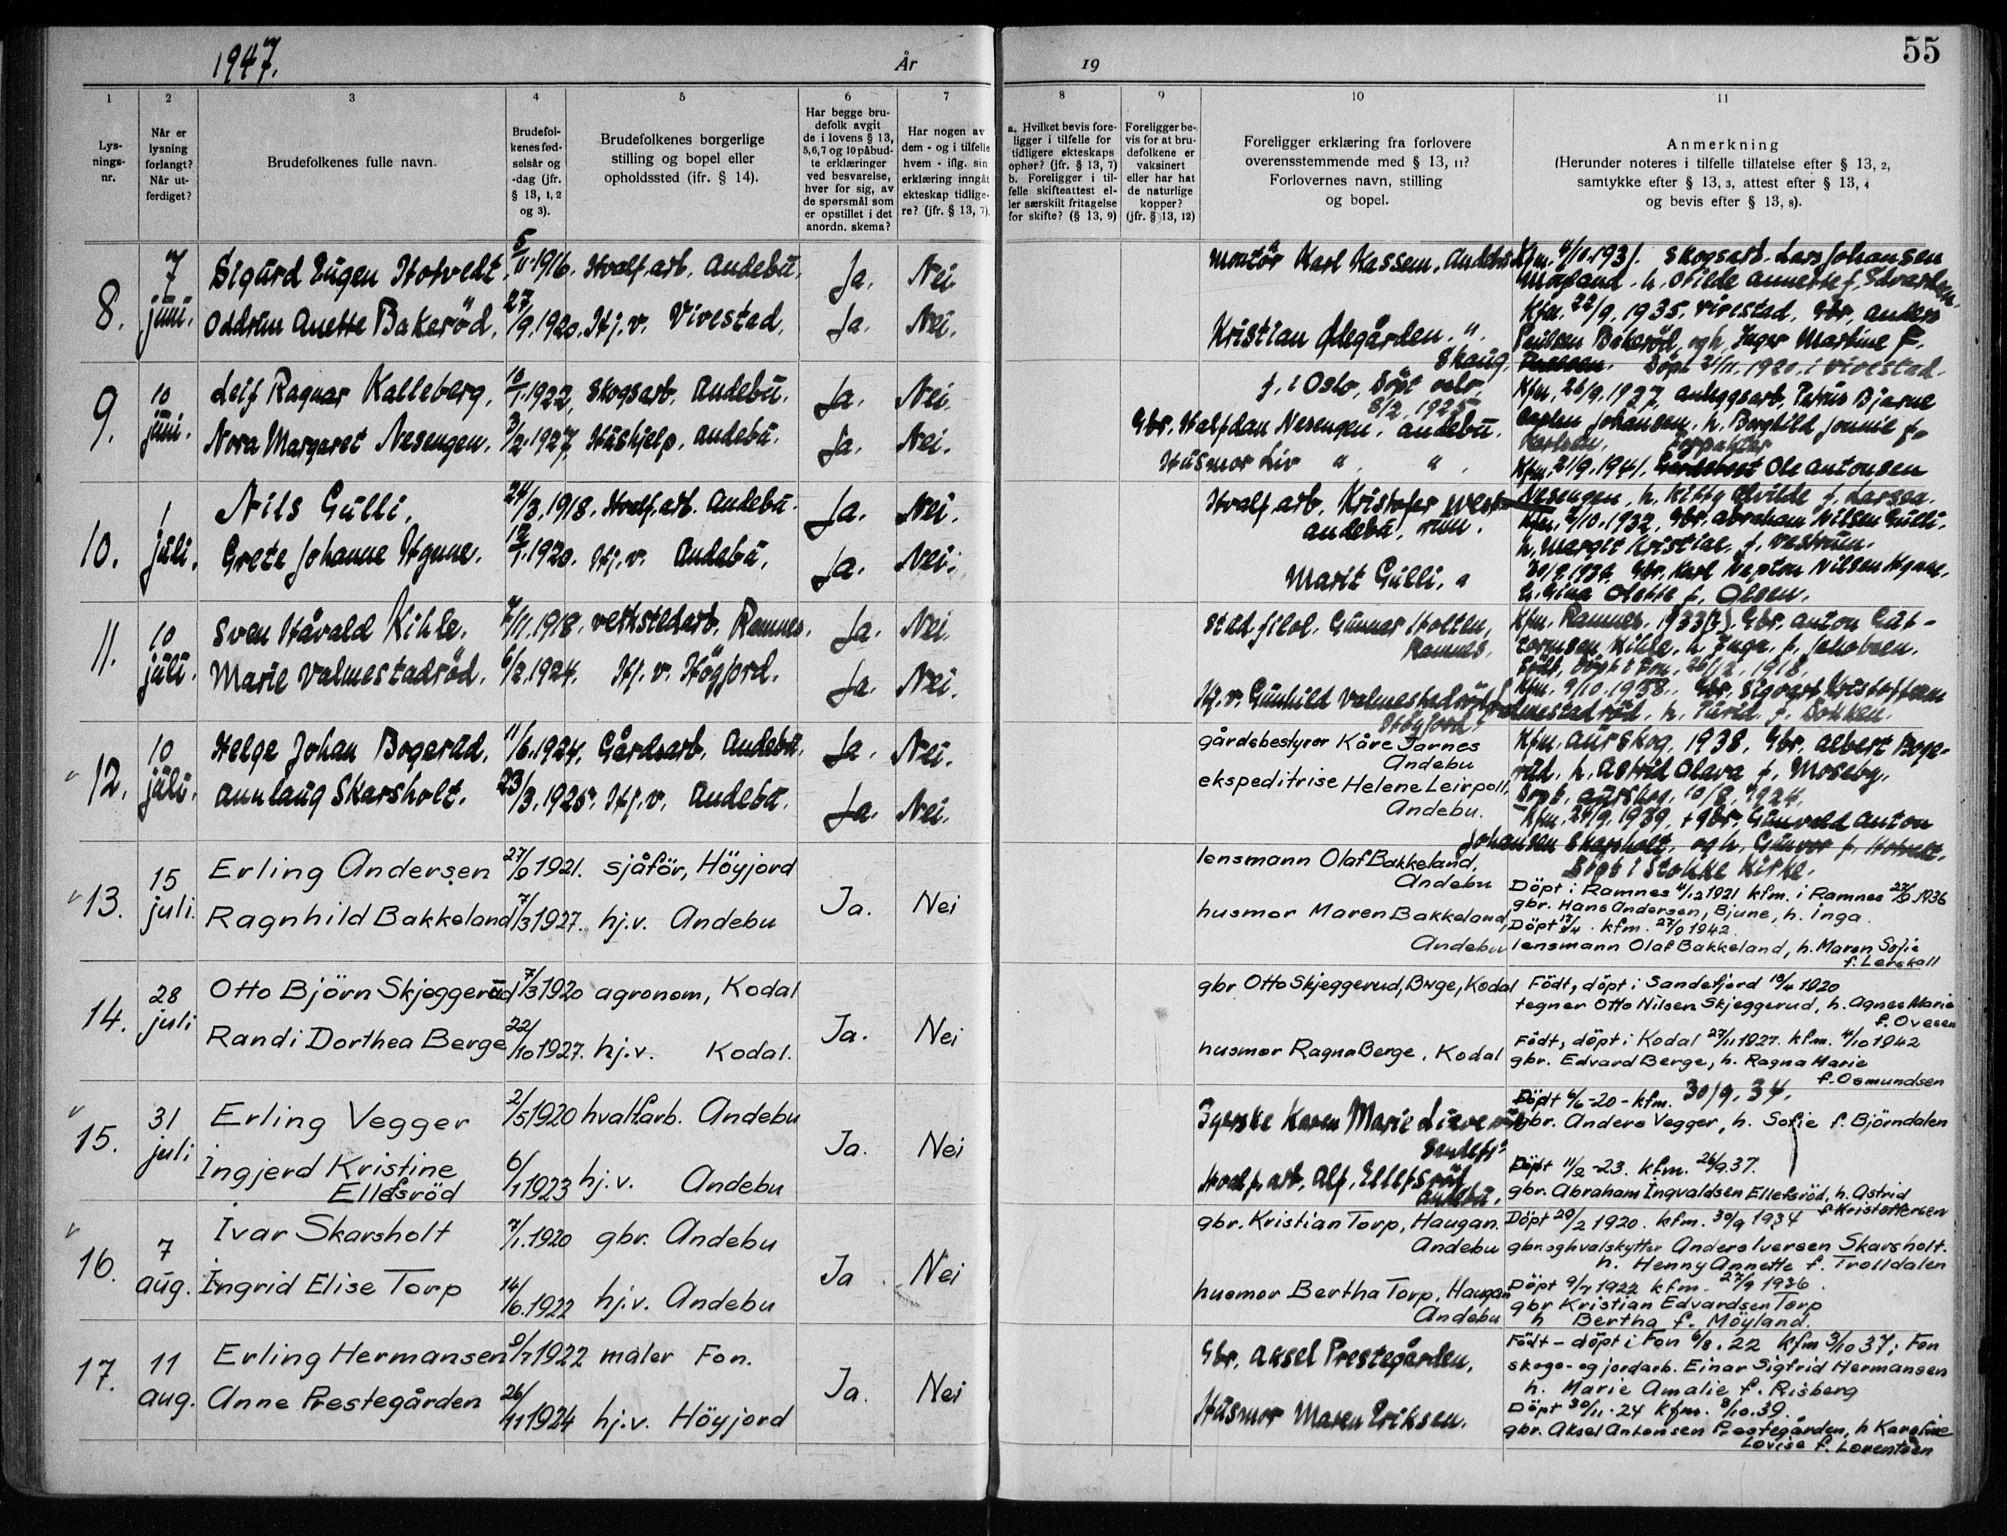 1947.
År
19
55
1
2
3
4
5
6
7
8
9
10
11
Lys-
nings-
nr.
Når er
lysning
forlangt?
Når ut-
ferdiget?
Brudefolkenes fulle navn.
Brudefol-
kenes fød-
selsår og
-dag (jfr.
§ 13, 1, 2
og 3).
Brudefolkenes borgerlige
stilling og bopel eller
opholdssted (ifr. § 14).
Har begge bru-
defolk avgit
de i lovens § 13,
5,6,7 og 10 påbud-
te erklæringer
ved besvarelse,
hver for sig, av
de spørsmål som
er opstillet i det
anordn. skema?
Har nogen av
dem - og i tilfelle
hvem - iflg. sin
erklæring inngåt
ekteskap tidlige-
re? (jfr. § 13, 7).
a. Hvilket bevis fore-
ligger i tilfelle for
tidligere ekteskaps
ophør? (jfr. § 13, 7)
b. Foreligger i til-
felle skifteattest el-
ler særskilt fritagelse
for skifte? (§ 13, 9)
Foreligger be-
vis for at bru-
defolkene er
vaksinert
eller har hat
de naturlige
kopper?
(jfr. § 13, 12)
Foreligger erklæring fra forlovere
overensstemmende med § 13, 11?
Forlovernes navn, stilling
og bopel.
Anmerkning
(Herunder noteres i tilfelle tillatelse efter § 13, 2,
samtykke efter § 13, 3, attest efter § 13, 4
og bevis efter § 13, 8).
8.
7
juni.
Sigurd Eugen Hotvedt
5/11.1916. Hvalf.arb. Andebu.
Ja.
Nei
Oddrun Anette Bakeröd.
27/9.1920. Hj.v. Vivestad.
Ja.
Nei.
montör Karl Kassen. Andebu
Kristian Ødegården. "
Kfm. 4/10.1931. Skogsarb. Lars Johansen
Kfm. 22/9.1935. Vivestad. Gbr. Anders
Paulsen Bakeröd, og h. Inger Martine f.
Döpt 21/11.1920. i Vivestad.
9.
10
juni.
Leif Ragnar Kalleberg.
10/1.1922. Skogsarb. Andebu.
Ja.
Nei.
Nora Margaret Nesengen.
3/2.1927. Hushjelp. Andebu.
Ja.
Nei.
f. i Oslo, döpt
8/2.1925
Gbr. Halfdan Nesengen. Andebu.
Husmor Liv " "
Kfm. 26/9.1937. Anleggsarb. Petrus Bjarne
Johansen. h. Borghild Jonnie f.
Karlsen.
Kfm. 21/9.1941. Ole Antonsen
Nesengen. h. Kitty Alvilde f. Larsen.
10.
1
juli.
Nils Gulli.
24/3.1918. Hvalf.arb. Andebu.
Ja.
Nei.
Grete Johanne Hynne.
12/1.1920. Hj.v. Andebu.
Ja.
Nei.
Hvalf.arb. Kristofer West-
Andebu. rum.
Marit Gulli. "
Kfm. 2/10.1932. Gbr. Abraham Nilsen Gulli.
h. Margit Kristine f. Vestrum.
30/9.1934. Gbr. Karl Nepton Nilsen Hynne.
h. Gina Olette f. Olsen.
11.
10
juli.
Sven Håvald Kihle.
7/11.1918. verkstedarb. Ramnes.
Ja.
Nei
Marie Valmestadröd.
6/2.1924. Hj.v. Högjord.
Ja.
Nei.
stud.filol. Gunnar Holten,
Ramnes.
Hj.v. Gunhild Valmestadröd
Höyjord
Kfm. Ramnes. 1933(?). Gbr. Anton Gut-
tormsen Kihle. h. Inga f. Jakobsen.
Kfm. 9/10.1938. Gbr. Sigvart Kristoffersen
Valmestadröd. h. Turid f. Bakken.
12.
10
juli.
Helge Johan Bogerud.
11/6.1924. Gårdsarb. Andebu.
Ja.
Nei.
Annlaug Skarsholt.
23/3.1925. Hj.v. Andebu.
Ja.
Nei.
gårdsbestyrer Kåre Jarnes
Andebu
ekspeditrise Helene Leirpoll,
Andebu.
Kfm. Aurskog. 1938. Gbr. Albert Boge-
rud. h. Astrid Olava f. Moseby.
Döpt. Aurskog. 10/8.1924.
Kfm. 24/9.1939. + gbr. Gunvald Anton
Johansen Skarsholt. og h. Gunvor f. Hotvedt.
Döpt i Stokke Kirke.
13.
15
juli.
Erling Andersen
27/9 1921. sjåför, Höyjord
Ragnhild Bakkeland
7/3 1927. hj.v. Andebu
Ja.
Nei
lensmann Olaf Bakkeland,
Andebu
husmor Maren Bakkeland,
Andebu
Döpt i Ramnes 4/12 1921 kfm. i Ramnes 27/9.1936
gbr. Hans Andersen, Bjune, h. Inga
Döpt 17/4. kfm. 27/9 1942
lensmann Olaf Bakkeland, h. Maren Sofie
f. Lerskall
14.
28
juli
Otto Björn Skjeggerud
7/3 1920 agronom, Kodal
Randi Dorthea Berge
22/10 1927. hj.v. Kodal.
Ja.
Nei
gbr Otto Skjeggerud, Berge, Kodal
husmor Ragna Berge, Kodal
Födt, döpt i Sandefjord 18/4 1920
tegner Otto Nilsen Skjeggerud, h. Agnes Marie
f. Ovesen
Födt, döpt i Kodal 27/11 1927. kfm. 4/10 1942
gbr. Edvard Berge, h. Ragna Marie
f. Osmundsen
15.
31
juli
Erling Vegger
2/5 1920 hvalf.arb. Andebu
Ingjerd Kristine
Ellefsröd
6/1 1923 hj.v. Andebu
Ja.
Nei
Karen Marie
Hvalf.arb. Alf. Ellefsröd
Andebu.
Döpt 6/6-20 - kfm. 30/9.34.
gbr. Anders Vegger, h. Sofie f. Björndalen
Döpt 11/2-23. kfm. 26/9.37.
gbr. Abraham Ingvaldsen Ellefsröd, h. Astrid
f. Kristoffersen
16.
7
aug.
Ivar Skarsholt
7/1.1920 gbr. Andebu
Ingrid Elise Torp
14/6.1922 hj.v. Andebu
Ja
Nei
gbr. Kristian Torp, Haugan.
Andebu
husmor Bertha Torp, Haugan
Andebu
Döpt 29/2 1920. kfm. 30/9 1934
gbr. og hvalskytter Anders Iversen Skarsholt.
h. Henny Annette f. Trolldalen
Döpt 9/7 1922 kfm. 27/9 1936.
gbr Kristian Edvardsen Torp
h Bertha f. Möyland.
17.
11
aug.
Erling Hermansen
9/7 1922 maler Fon.
Anne Prestegården
26/11 1924 hj.v. Höyjord
Ja.
Nei
Gbr. Aksel Prestegården.
Husmor Maren Eriksen.
Födt - döpt i Fon 6/8.22 kfm 3/10 37 i Fon
skogs- og jordarb. Einar Sigfrid Hermansen
h. Marie Amalie f. Risberg
Döpt 30/11-24 kfm. 8/10.39.
gbr. Aksel Antonsen Prestegården, h Karoline
Lovise f. Lorentsen